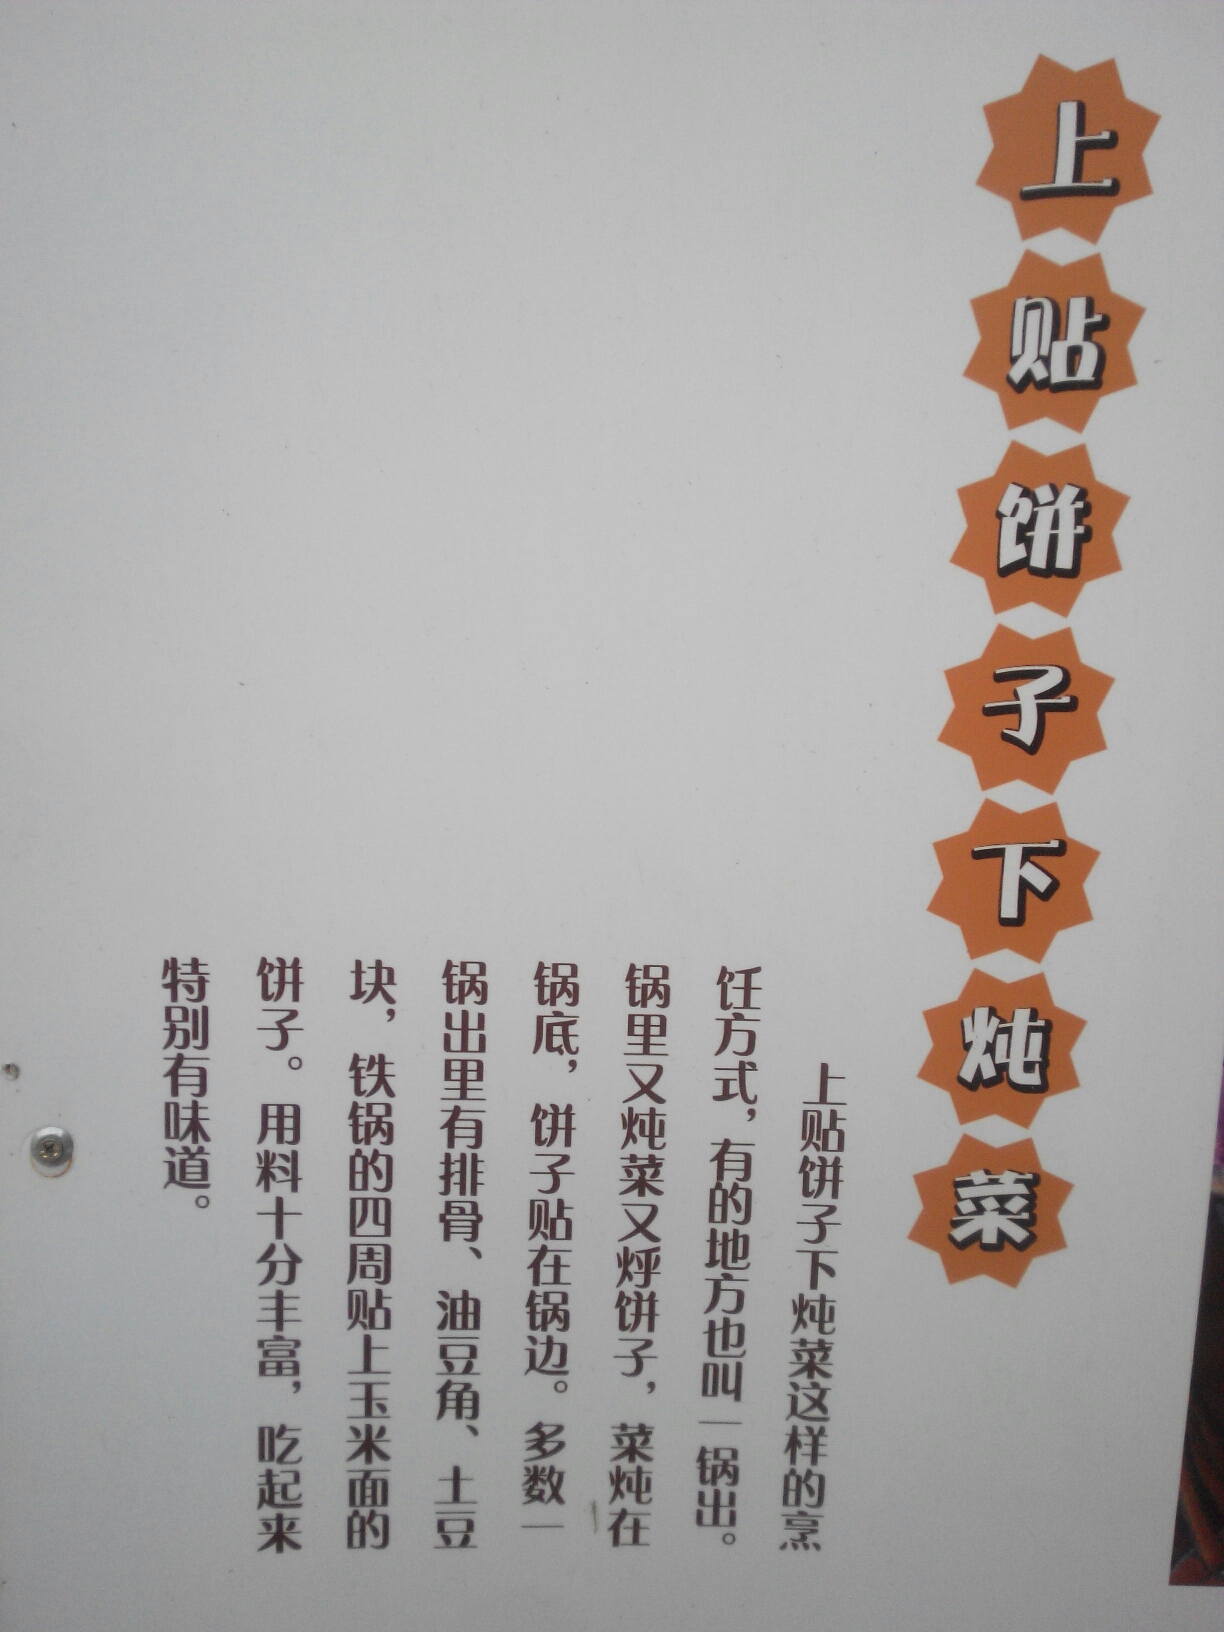 上贴饼子下炖菜
上贴饼子下炖菜这样的烹
饪方式，有的地方也叫一锅出。
锅里又炖菜又烀饼子，菜炖在
锅底，饼子贴在锅边。多数一
锅出里有排骨、油豆角、土豆
块，铁锅的四周贴上玉米面的
饼子。用料十分丰富，吃起来
特别有味道。